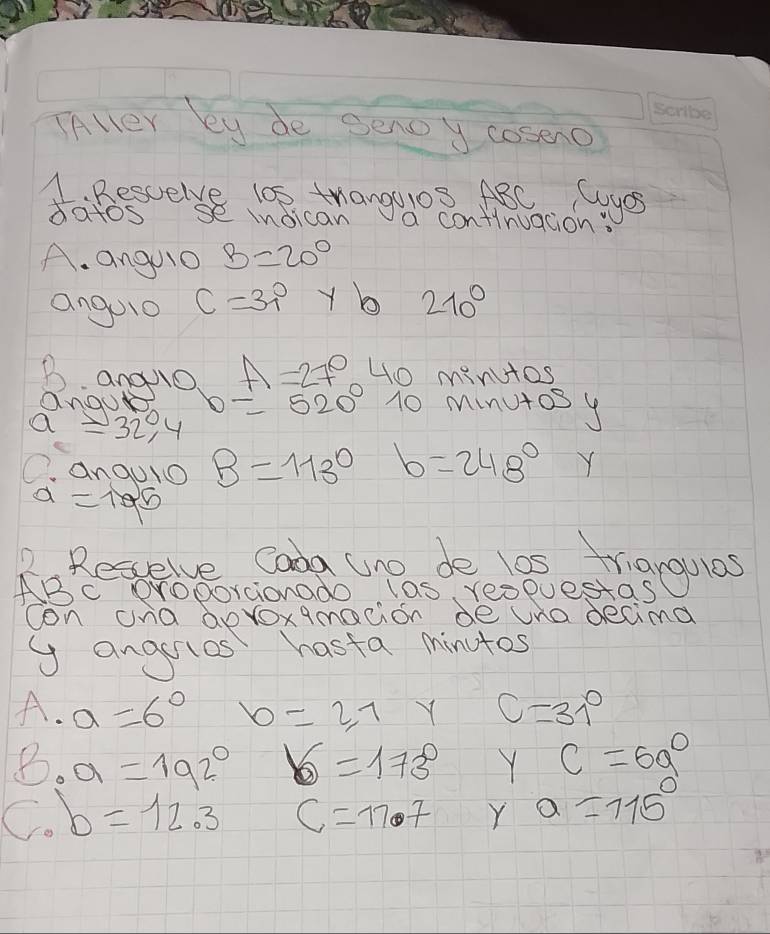 Scribe
TAller ley de seno y coseno
1. Resuelve los triangulos ABC, Cuyos
datos se indican a continuacion:
A. angulo B=20°
angulo C=31° y b 210°
B. angulo A=27° 40 minutos
angulo b= 520° 10 minutos y
a =32°,4
C. angulo B=113° b=248° y
a =195
2. Resuelve Cada uno de los triangulos
ABC proporcionado las respuestas
con una aproximación de una decima
y angulos hasta minutos
A. a=6° b=2,7 y C=31°
B. a=192° b=173° y C=69°
C. b=12.3 C=17.7 y a=115°